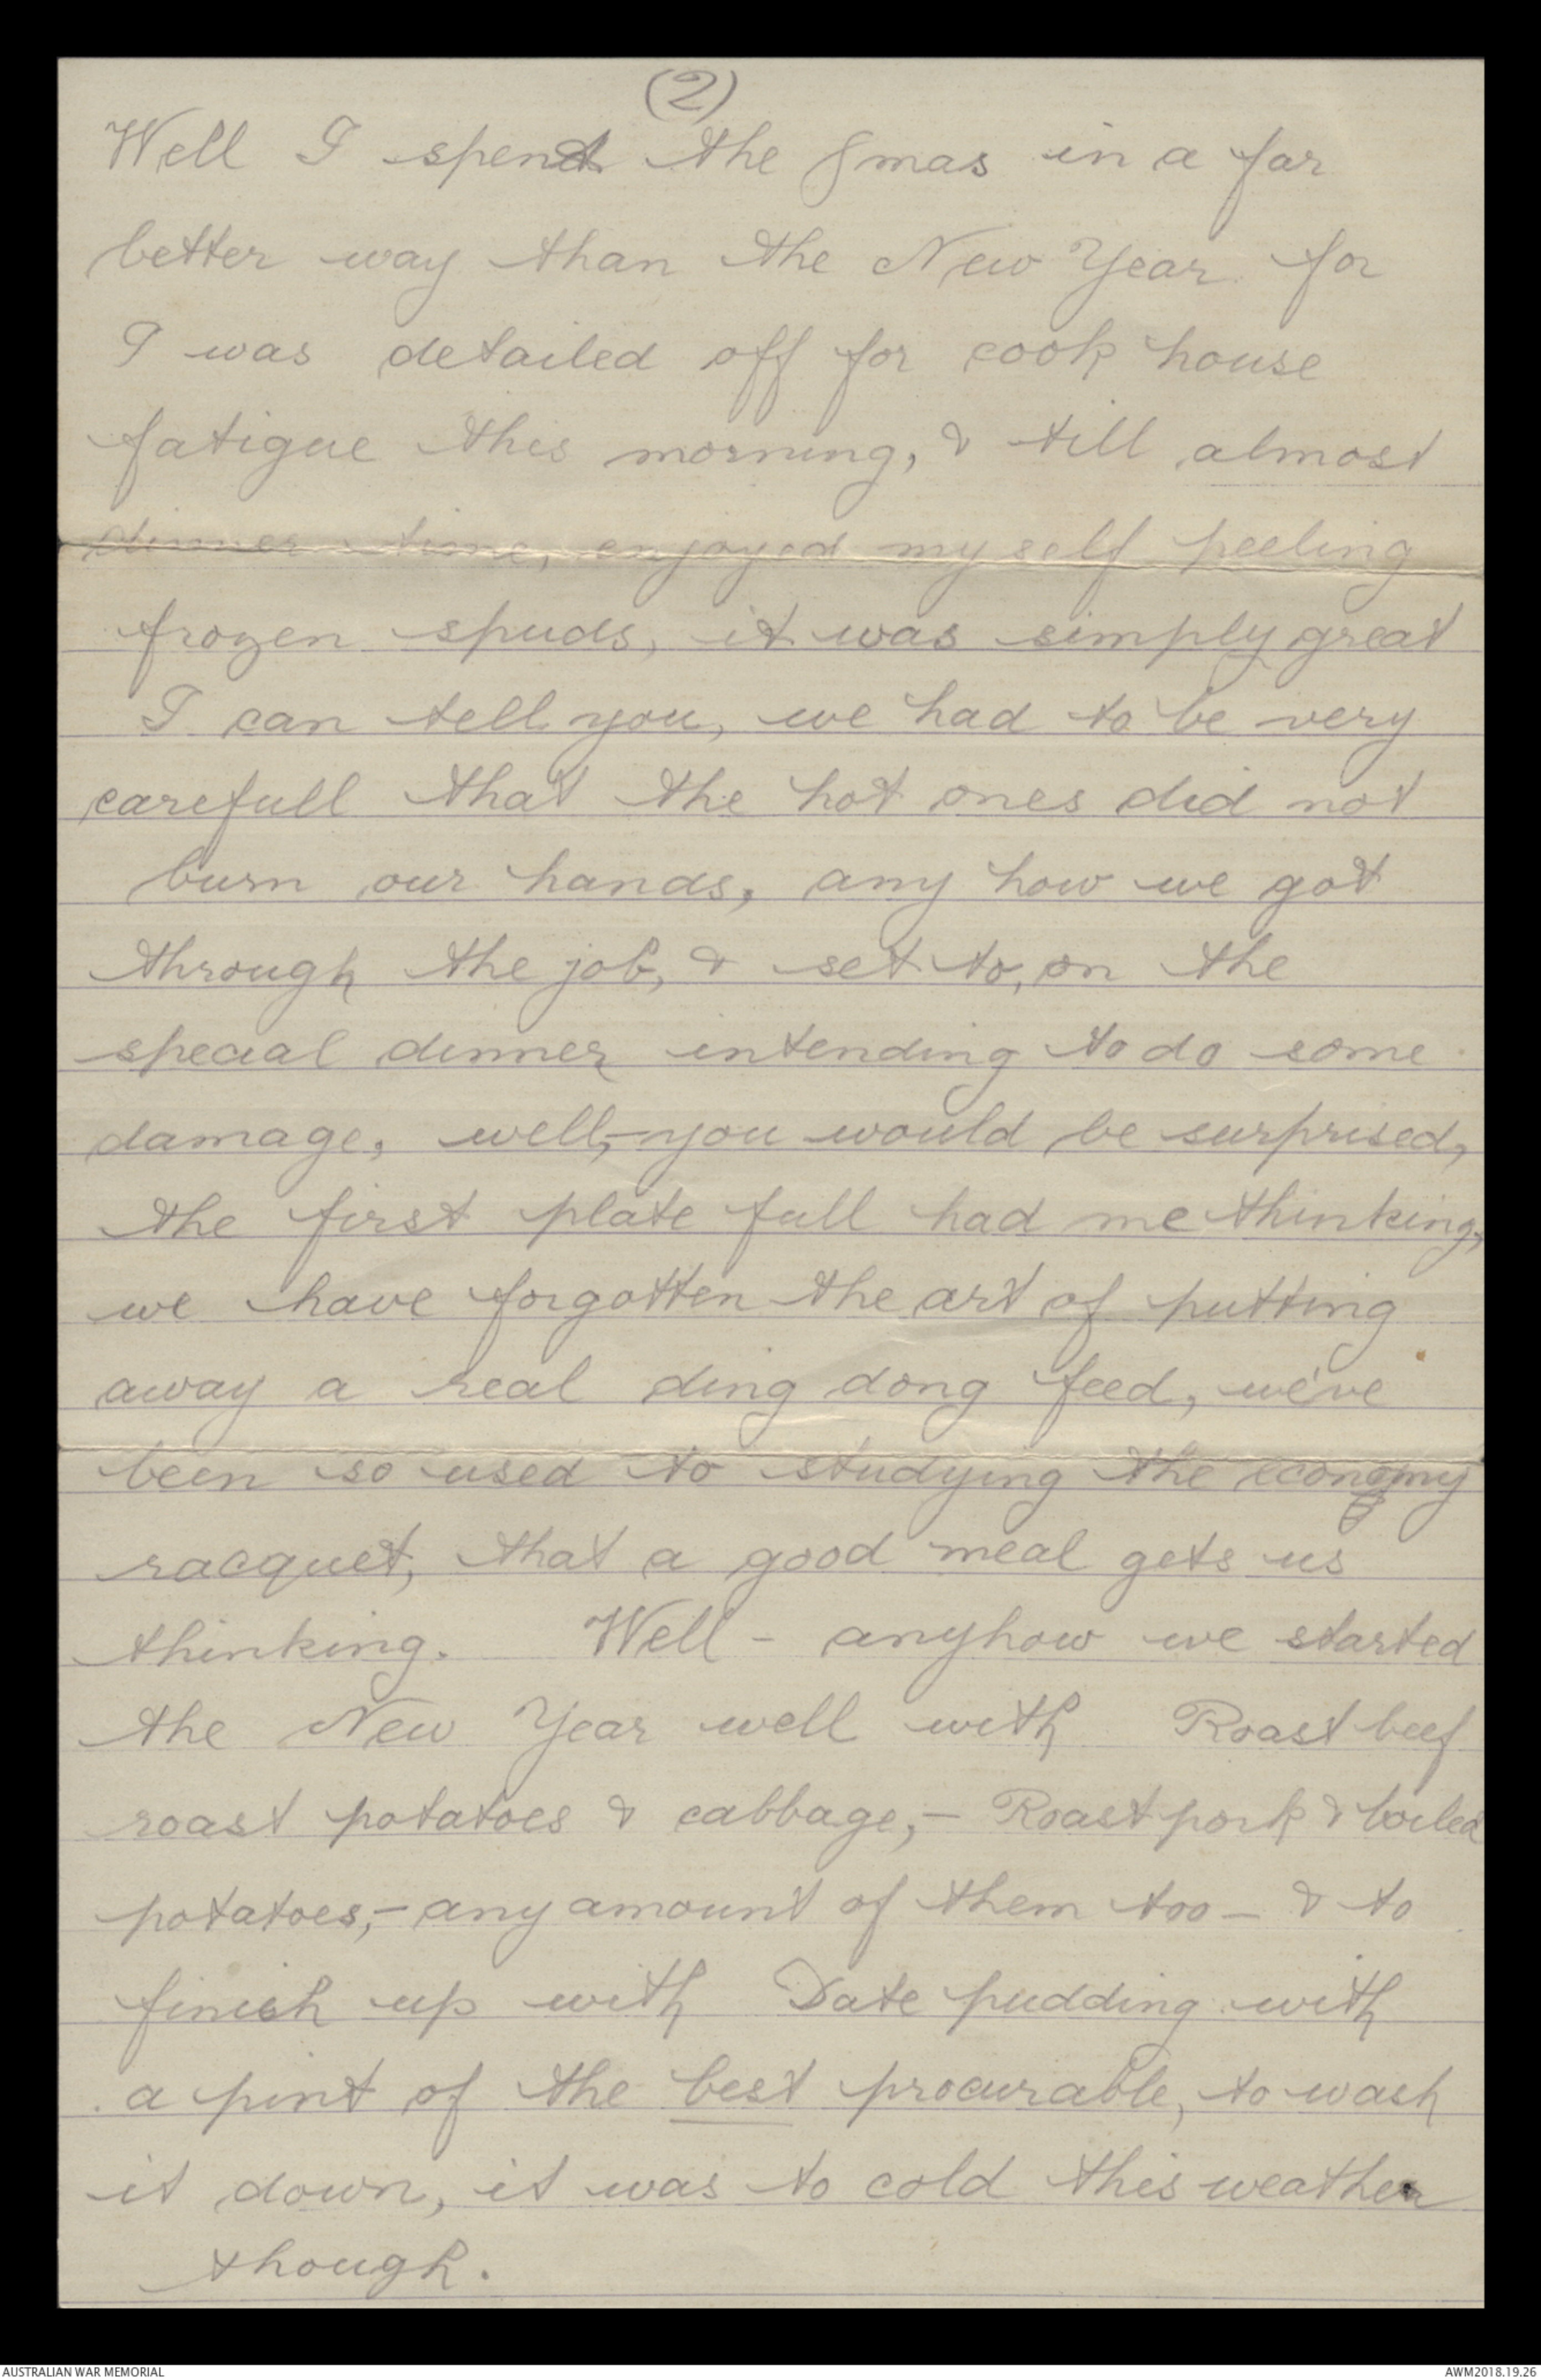 (2)
Well I spent the Xmas in a far
better way than the New Year for
I was detailed off for cook house
fatigue this morning, & till almost
dinner time, enjoyed myself peeling
frozen spuds, it was simply great
I can tell you, we had to be very
carefull that the hot ones did not
burn our hands, any how we got
through the job, & set to, on the
special dinner intending to do some
damage, well,- you would be surprised,
the first plate full had me thinking,
we have forgotten the art of putting
away a real ding dong feed, we've
been so used to studying the economy
racquet, that a good meal gets us
thinking. Well - anyhow we started
the New Year well with Roast beef
roast potatoes & cabbage,- Roast pork & boiled
potatoes,- any amount of them too - & to
finish up with Date pudding with
a pint of the best procurable, to wash
it down, it was to cold this weather
though.
AUSTRALIAN WAR MEMORIAL
AWM2018.19.26